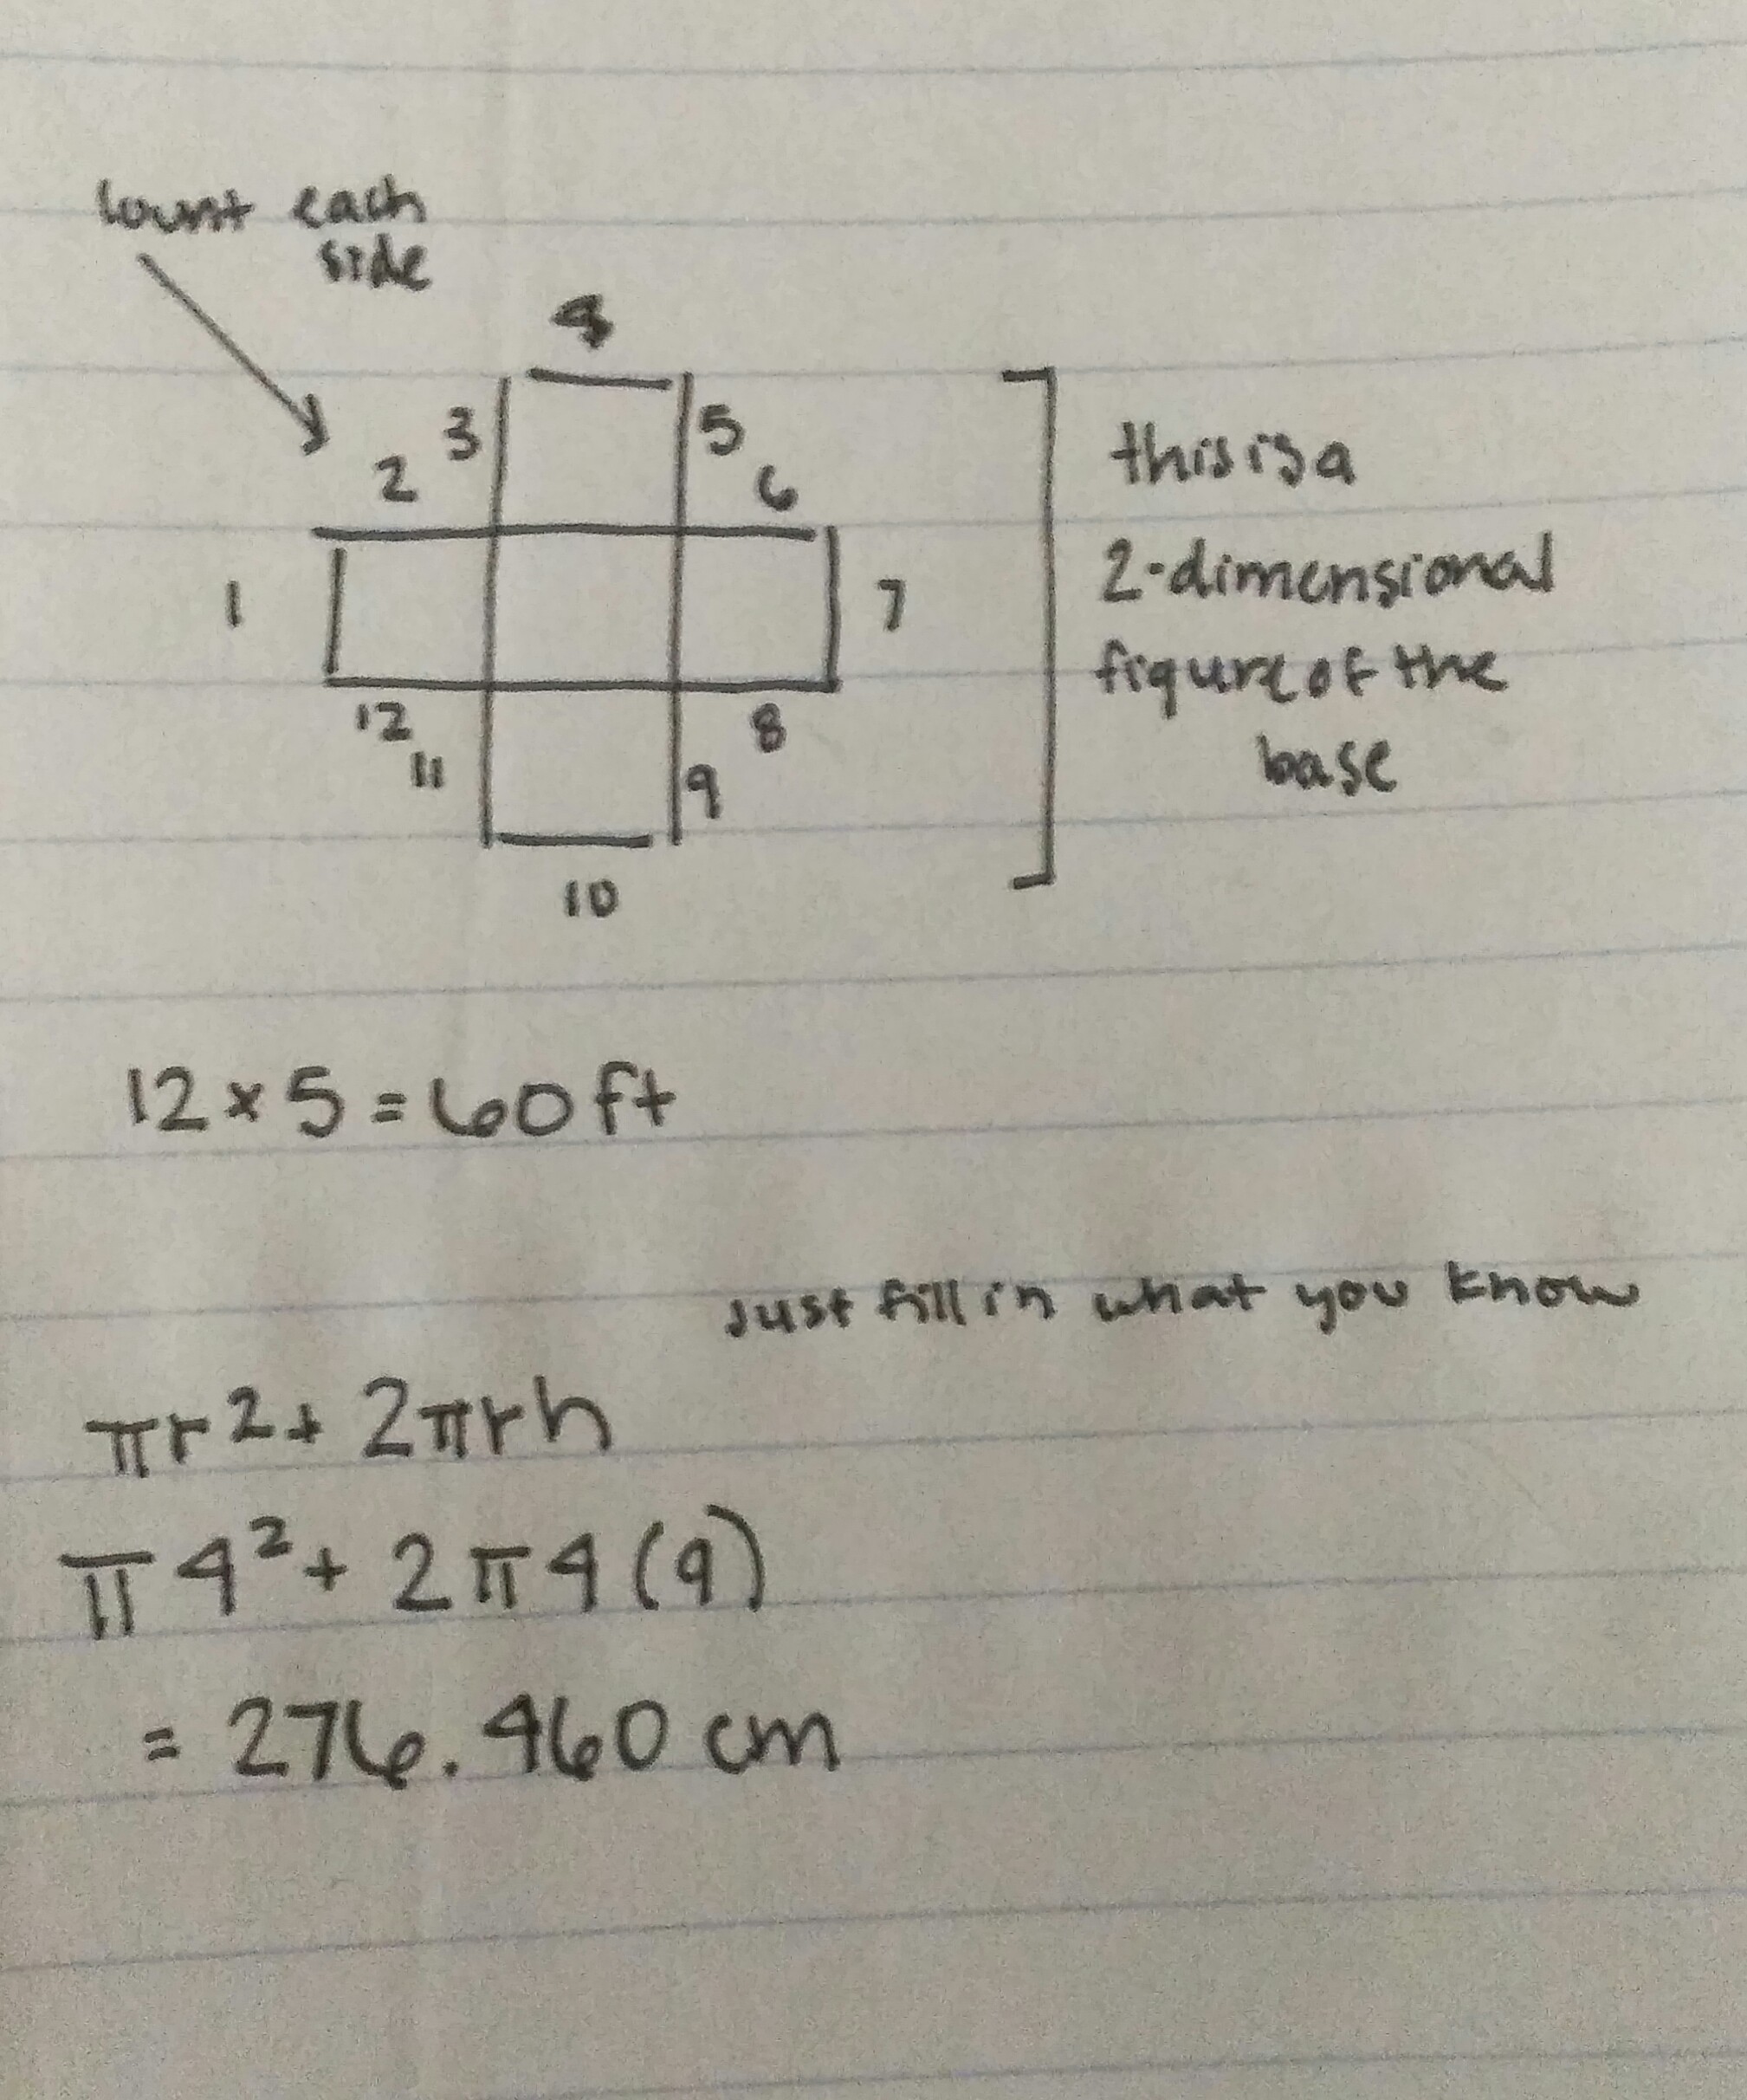 count each
side
4
3 5
2 6
1 7
12 8
11 9
10
this is a
2-dimensional
figure of the
base
12 x 5 = 60 ft
Just fill in what you know
πr2 + 2πrh
π4² + 2π4(9)
= 276.460 cm